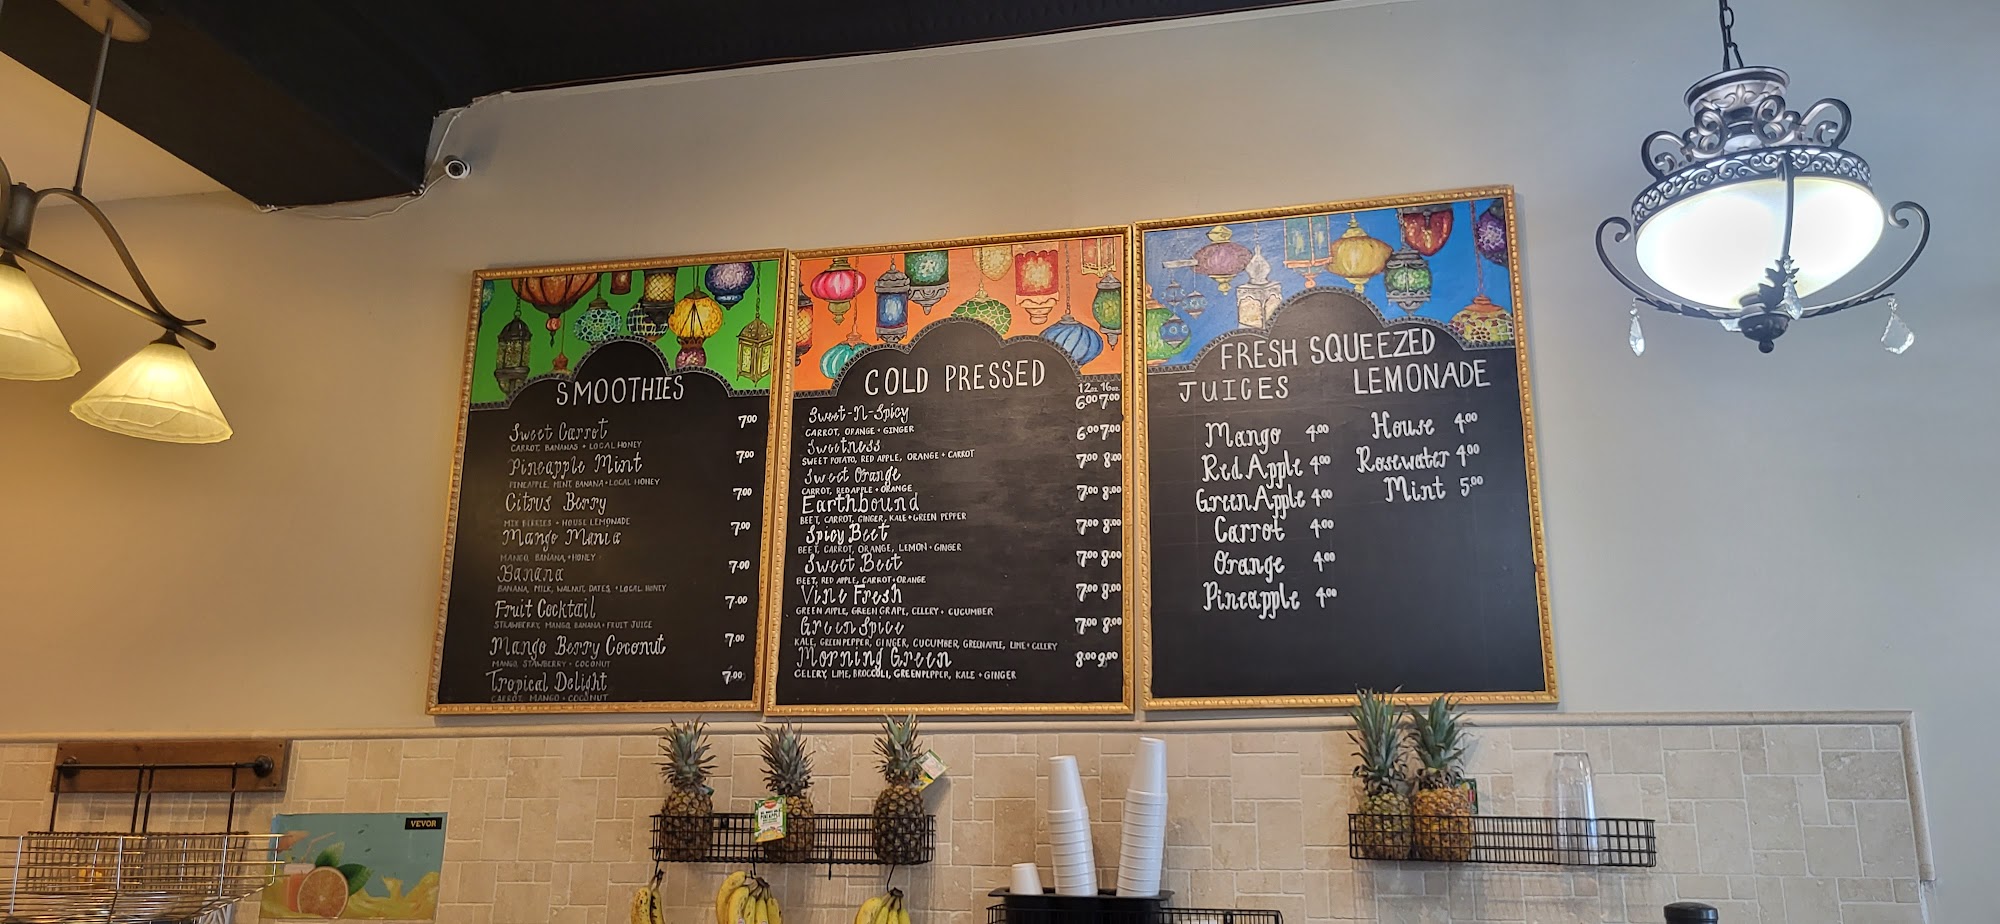 SMOOTHIES
7.00
Sweet Carrot
CARROT, BANANAS + LOCAL HONEY
7.00
Pineapple Mint
PINEAPPLE, MINT, BANANA + LOCAL HONEY
7.00
Citrus Berry
MIX BERRIES + HOUSE LEMONADE
7.00
Mango Mania
MANGO, BANANA, + HONEY
7.00
Banana
BANANA, MILK, WALNUT, DATES, + LOCAL HONEY
7.00
Fruit Cocktail
STRAWBERRY, MANGO, BANANA + FRUIT JUICE
7.00
Mango Berry Coconut
MANGO, STAWBERRY + COCONUT
7.00
Tropical Delight
CARROT, MANGO + COCONUT
COLD PRESSED
12oz. 16oz.
6.00 7.00
Sweet-N-Spicy
CARROT, ORANGE + GINGER
6.00 7.00
Sweetness
SWEET POTATO, RED APPLE, ORANGE + CARROT
7.00 8.00
Sweet Orange
CARROT, RED APPLE + ORANGE
7.00 8.00
Earthbound
BEET, CARROT, GINGER, KALE + GREEN PEPPER
7.00 8.00
Spicy Beet
BEET, CARROT, ORANGE, LEMON + GINGER
7.00 8.00
Sweet Beet
BEET, RED APPLE, CARROT + ORANGE
7.00 8.00
Vine Fresh
GREEN APPLE, GREEN GRAPE, CELERY + CUCUMBER
7.00 8.00
Green Spice
KALE, GREEN PEPPER, GINGER, CUCUMBER, GREEN APPLE, LIME + CELERY
8.00 9.00
Morning Green
CELERY, LIME, BROCCOLI, GREEN PEPPER, KALE + GINGER
FRESH SQUEEZED
JUICES
Mango 4.00
Red Apple 4.00
Green Apple 4.00
Carrot 4.00
Orange 4.00
Pineapple 4.00
LEMONADE
House 4.00
Rosewater 4.00
Mint 5.00
VEVOR